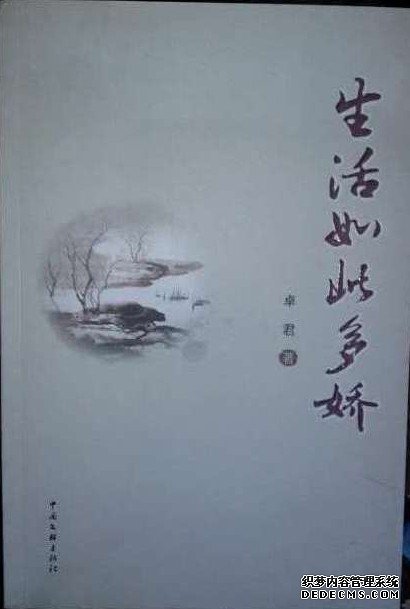 生活如此多娇
卓君 著
中国文联出版社
织梦内容管理系统
DEDECMS.COM